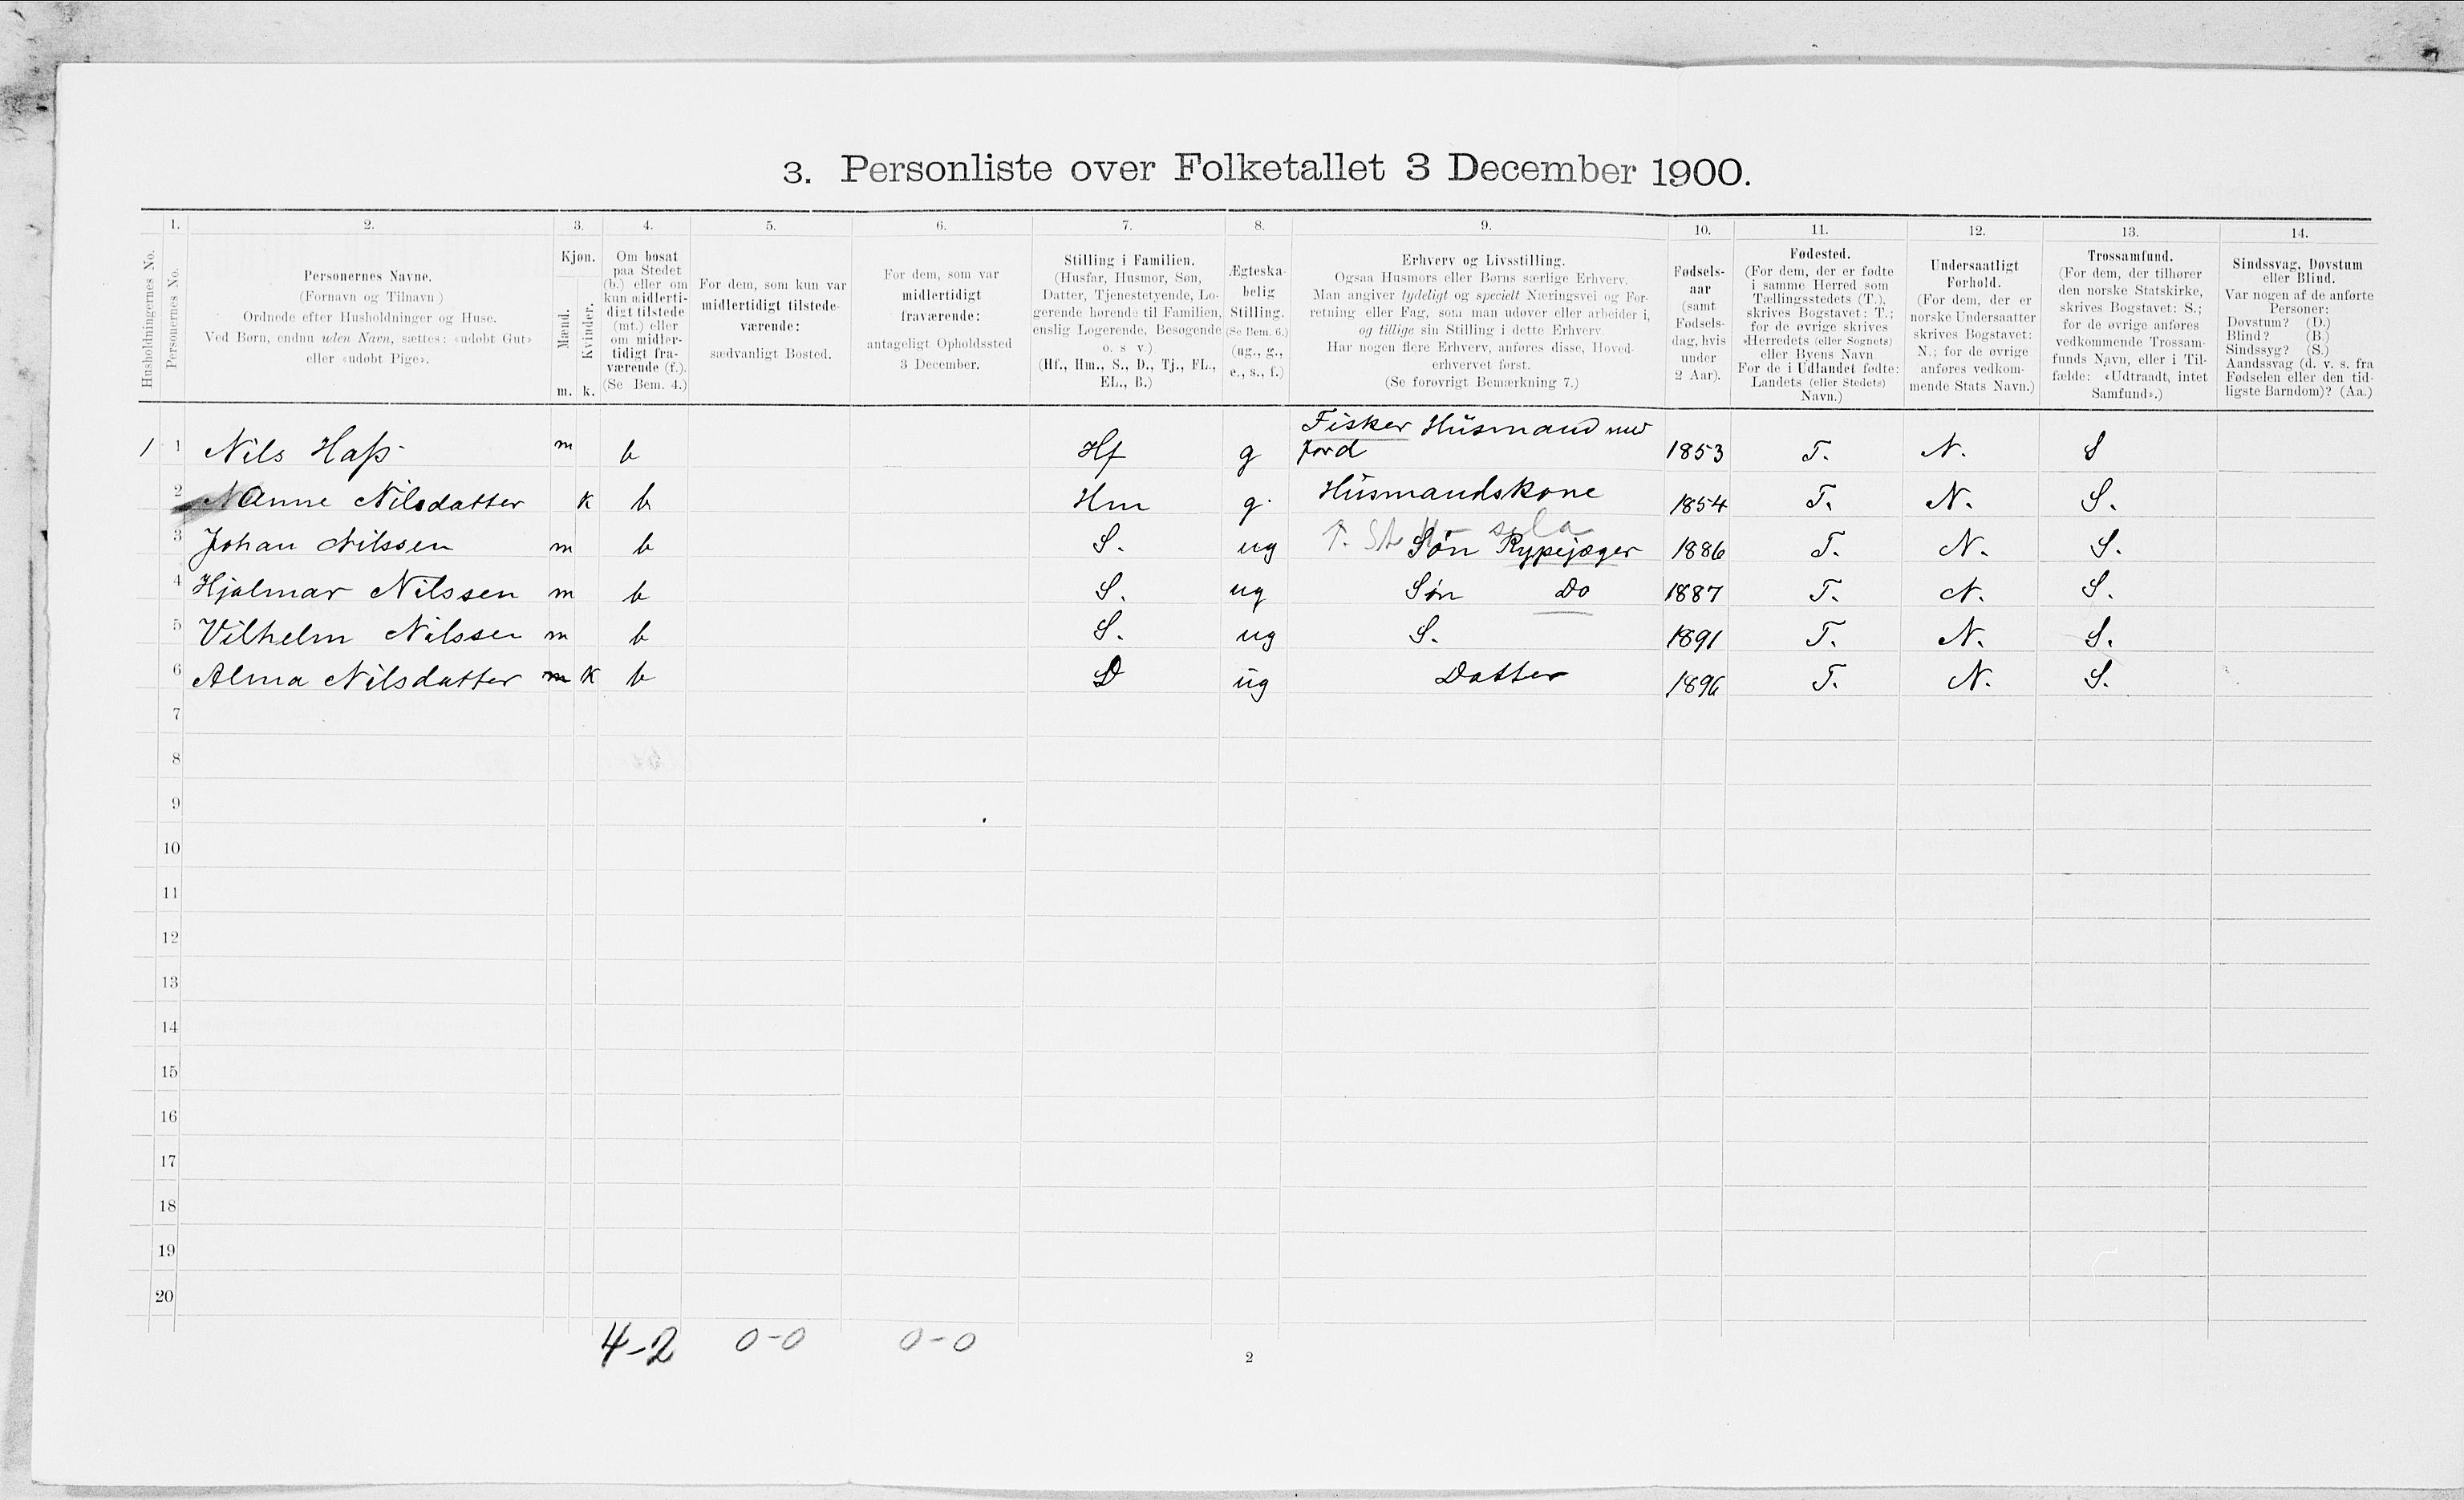 3. Personliste over Folketallet 3 December 1900.
Husholdningernes No.
1.
Personernes No.
2.
Personernes Navne.
(Fornavn og Tilnavn )
Ordnede efter Husholdninger og Huse.
Ved Børn, endnu uden Navn, sættes: «udøbt Gut»
eller «udøbt Pige».
3.
Kjøn.
Mænd.
Kvinder.
m. k.
4.
Om bosat
paa Stedet
(b.) eller om
kun midlerti-
digt tilstede
(mt.) eller
om midler-
tidigt fra-
værende (f.).
(Se Bem. 4.)
5.
For dem, som kun var
midlertidigt tilstede-
værende:
sædvanligt Bosted.
6.
For dem, som var
midlertidigt
fraværende:
antageligt Opholdssted
3 December.
7.
Stilling i Familien.
(Husfar, Husmor, Søn,
Datter, Tjenestetyende, Lo-
gerende hørende til Familien,
enslig Logerende, Besøgende
o. s v.)
(Hf., Hm., S., D., Tj., FL.,
EL., B.)
8.
Ægteska-
belig
Stilling.
(Se Bem. 6.)
(ug., g.,
e., s., f.)
9.
Erhverv og Livsstilling.
Ogsaa Husmors eller Børns særlige Erhverv.
Man angiver tydeligt og specielt Næringsvei og For-
retning eller Fag, som man udøver eller arbeider i,
og tillige sin Stilling i dette Erhverv.
Har nogen flere Erhverv, anføres disse, Hoved-
erhvervet først.
(Se forøvrigt Bemærkning 7.)
10.
Fødsels-
aar
(samt
Fødsels-
dag, hvis
under
2 Aar).
11.
Fødested.
(For dem, der er fødte
i samme Herred som
Tællingsstedets (T.),
skrives Bogstavet: T.;
for de øvrige skrives
«Herredets (eller Sognets)
eller Byens Navn
For de i Udlandet fødte:
Landets (eller Stedets)
Navn.)
12.
Undersaatligt
Forhold.
(For dem, der er
norske Undersaatter
skrives Bogstavet:
N.; for de øvrige
anføres vedkom-
mende Stats Navn.)
13.
Trossamfund.
(For dem, der tilhører
den norske Statskirke,
skrives Bogstavet: S.;
for de øvrige anføres
vedkommende Trossam-
funds Navn, eller i Til-
fælde: «Udtraadt, intet
Samfund».)
14.
Sindssvag, Døvstum
eller Blind.
Var nogen af de anførte
Personer:
Døvstum? (D.)
Blind? (B.)
Sindssyg? (S.)
Aandssvag (d. v. s. fra
Fødselen eller den tid-
ligste Barndom)? (Aa.)
1 1 Nils Haſs m b Hf g Fisker Husmand med
Jord 1853 T. N. S
2 Anne Nilsdatter k b Hm g. Husmandskone 1854 T. N. S.
3 Johan Nilssen m b S. ug Søn Rypejæger 1886 T. N. S.
4 Hjalmar Nilssen m b S. ug Søn Do 1887 T. N. S.
5 Vilhelm Nilssen m b S. ug S. 1891 T. N. S.
6 Alma Nilsdatter m k b D ug Datter 1896 T. N. S.
7
8
9
10
11
12
13
14
15
16
17
18
19
20
4-2 0-0 0-0
2